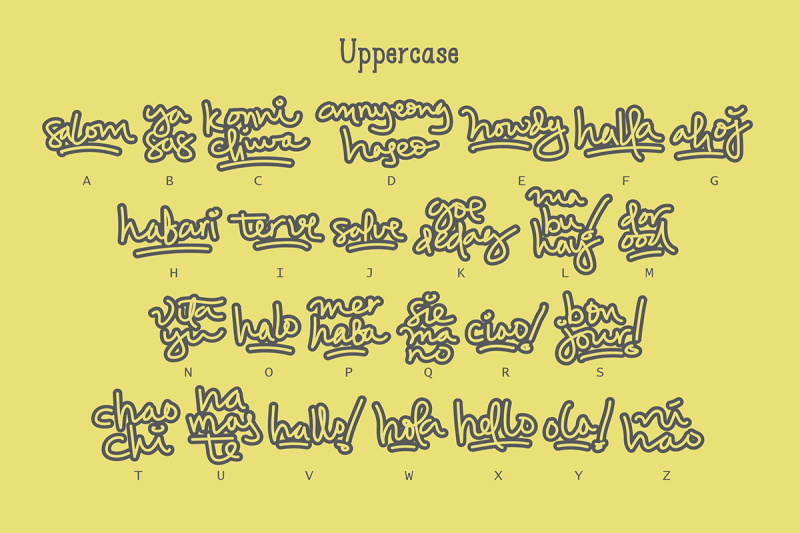 Uppercase
salom
A
ya
sas
B
konni
chiwa
C
annyeong
haseo
D
howdy
E
halla
F
ahoj
G
habari
H
terve
I
salve
J
goe
dedag
K
ma
bu
hay!
L
dor
ood
M
vita
yu
N
halo
O
mer
haba
P
sie
ma
no
Q
ciao!
R
bon
jour!
S
chao
chi
T
na
mas
te
U
hallo!
V
hola
W
hello
X
ola!
Y
ní
hao
Z